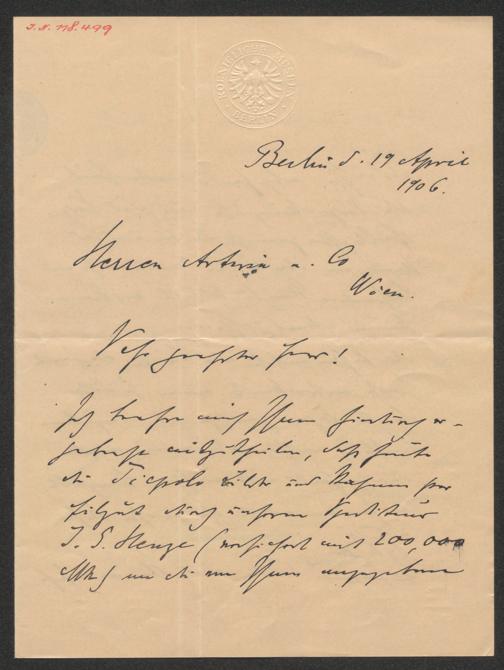 I.N. 118.499
KOENIGLICHE MUSEEN
BERLIN
Berlin d. 19 April
1906.
Herren Artaria u. Co
Wien.
Sehr geehrter Herr!
Ich beehre mich Ihnen hierdurch er-
gebenst mitzutheilen, daß heute
die Tiepolo Bilder und Rahmen per
Eilgut durch unseren Spediteur
(versichert mit 200,000
Mk) an die von Ihnen angegebene